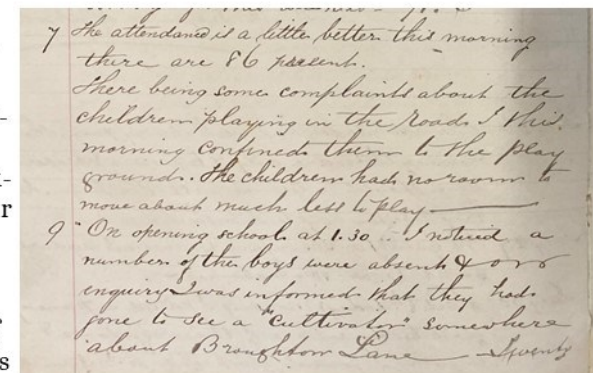 7 The attendance is a little better this morning
there are 86 present.
There being some complaints about the
children playing in the Roads I this
morning confined them to the play
grounds. The children had no room to
move about much less to play
9 On opening school at 1.30 . I noticed a
number of the boys were absent & on
enquiry I was informed that they had
gone to see a "cultivator" somewhere
about Broughton Lane Twenty